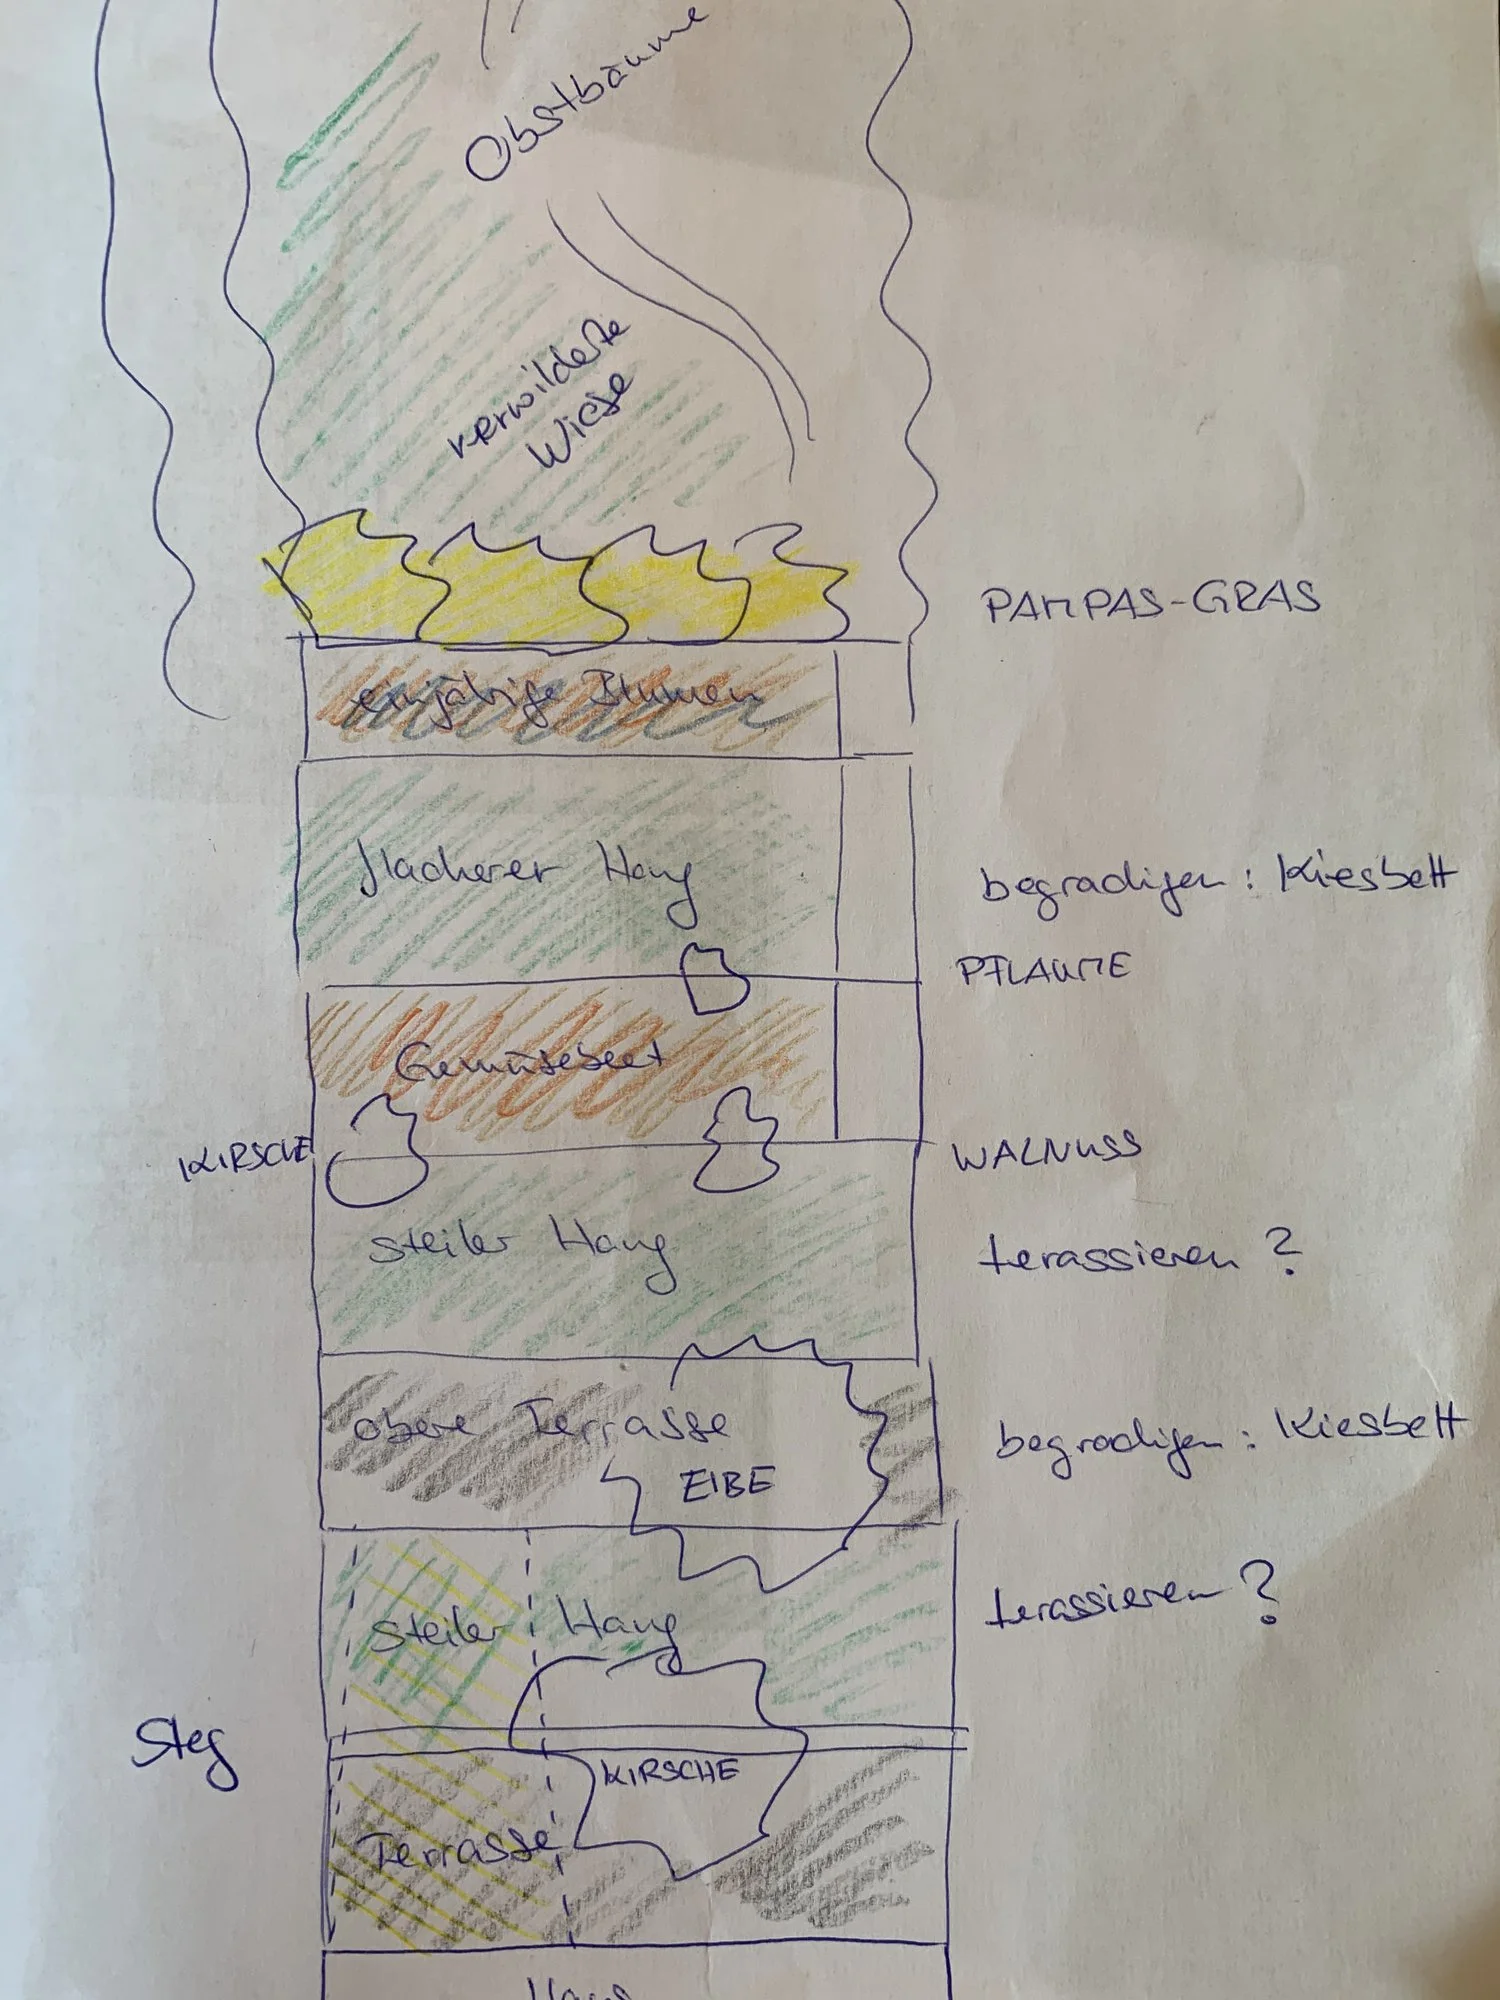 Obstbäume
verwilderte
Wiese
PAMPAS-GRAS
einjährige Blumen
flacherer Hang
begradigen: Kiesbett
PFLAUME
Gemüsebeet
KIRSCHE
WALNUSS
steiler Hang
terassieren?
obere Terrasse
EIBE
begradigen: Kiesbett
steiler Hang
terassieren?
Steg
KIRSCHE
Terrasse
Haus